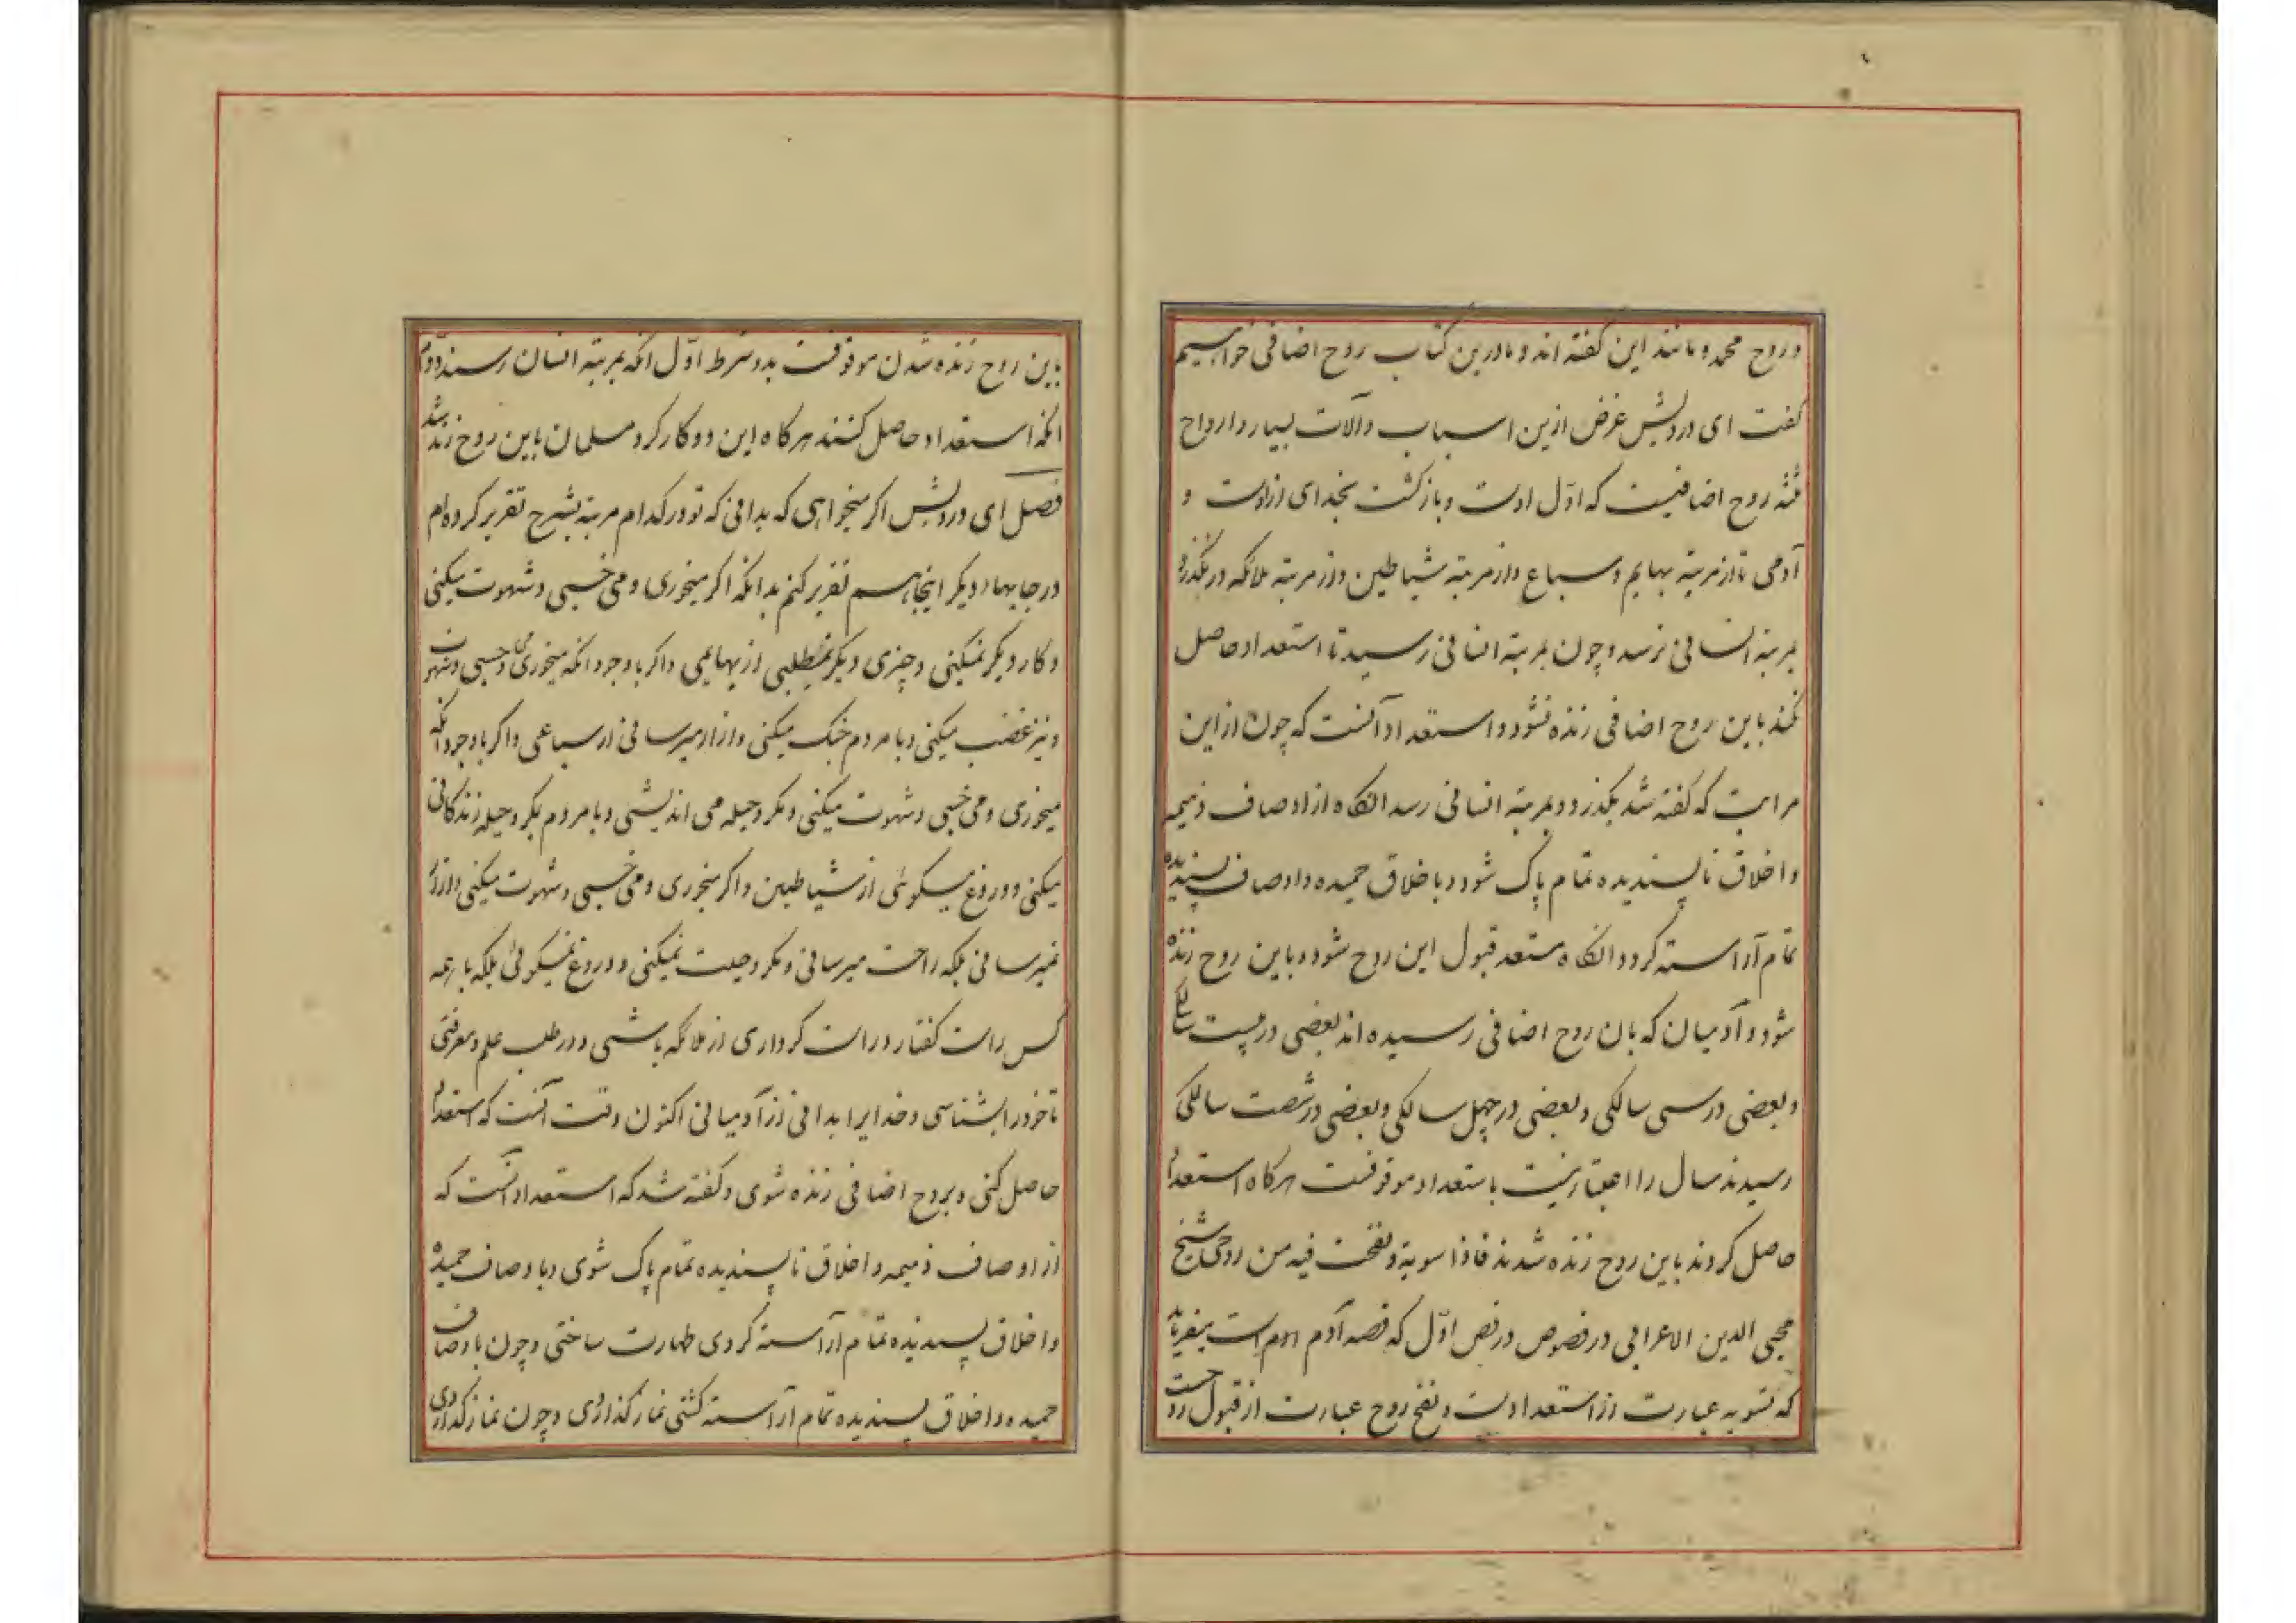 و روح محمد و مانند این گفته اند و ما درین کتاب روح اضافی خواهیم
گفت ای درویش غرض ازین اسباب و آلات بسیار و ارواح
ثلثه روح اضافیست که اول اوست و بازگشت بخدای ازوست و
آدمی تا از مرتبه بهایم و سباع و از مرتبه شیاطین و از مرتبه ملائکه در نگذرد
بمرتبه انسانی نرسد و چون بمرتبه انسانی رسید تا استعداد حاصل
نکند باین روح اضافی زنده نشود و استعداد آنست که چون از این
مراتب که گفته شد بگذرد و بمرتبه انسانی رسد آنگاه از اوصاف ذمیمه
و اخلاق ناپسندیده تمام پاک شود و باخلاق حمیده و اوصاف پسندیده
تمام آراسته گردد آنگاه مستعد قبول این روح شود و باین روح زنده
شود و آدمیان که بان روح اضافی رسیده اند بعضی در بیست سالگی
و بعضی در سی سالگی و بعضی در چهل سالگی و بعضی در شصت سالگی
رسیدند سال را اعتبار نیست باستعداد موقوفست هرگاه استعداد
حاصل کردند باین روح زنده شدند فاذا سویته و نفخت فیه من روحی شیخ
محیی الدین الاعرابی در فصوص در فص اول که قصه آدم است میفرماید
که تسویه عبارت از استعدادست و نفخ روح عبارت از قبول روحست
باین روح زنده شدن موقوفست بدو شرط اول انکه بمرتبه انسان رسند دوم
انکه استعداد حاصل کنند هرکاه این دو کار کرد مسلمان باین روح زنده شد
فصل ای درویش اکر میخواهی که بدانی که تو در کدام مرتبه بشرح تقریر کرده ام
در جایهاء دیکر اینجا هم تقریر کنم بدانکه اکر میخوری و می خسبی و شهوت میکنی
و کار دیکر نمیکنی و چیزی دیکر نمیطلبی از بهایمی و اکر باوجود انکه میخوری و می خسبی و شهوت
و نیز غضب میکنی و با مردم جنک میکنی و ازار میرسانی از سباعی و اکر باوجود انکه
میخوری و می خسبی و شهوت میکنی و مکر و حیله می اندیشی و با مردم بمکر و حیله زندکانی
میکنی و دروغ میکوئی از شیاطین و اکر میخوری و می خسبی و شهوت میکنی و ازار
نمیرسانی بلکه راحت میرسانی و مکر و حیلت نمیکنی و دروغ نمیکوئی بلکه با همه
کس راست کفتار و راست کرداری از ملائکه باشی و در طلب علم و معرفتی
تا خود را بشناسی و خدایرا بدانی از آدمیانی اکنون وقت آنست که استعداد
حاصل کنی و بروح اضافی زنده شوی و کفته شد که استعداد آنست که
از اوصاف ذمیمه و اخلاق ناپسندیده تمام پاک شوی و باوصاف حمیده
و اخلاق پسندیده تمام آراسته کردی طهارت ساختی و چون باوصاف
حمیده و اخلاق پسندیده تمام آراسته کشتی نماز کذاردی و چون نماز کذاردی